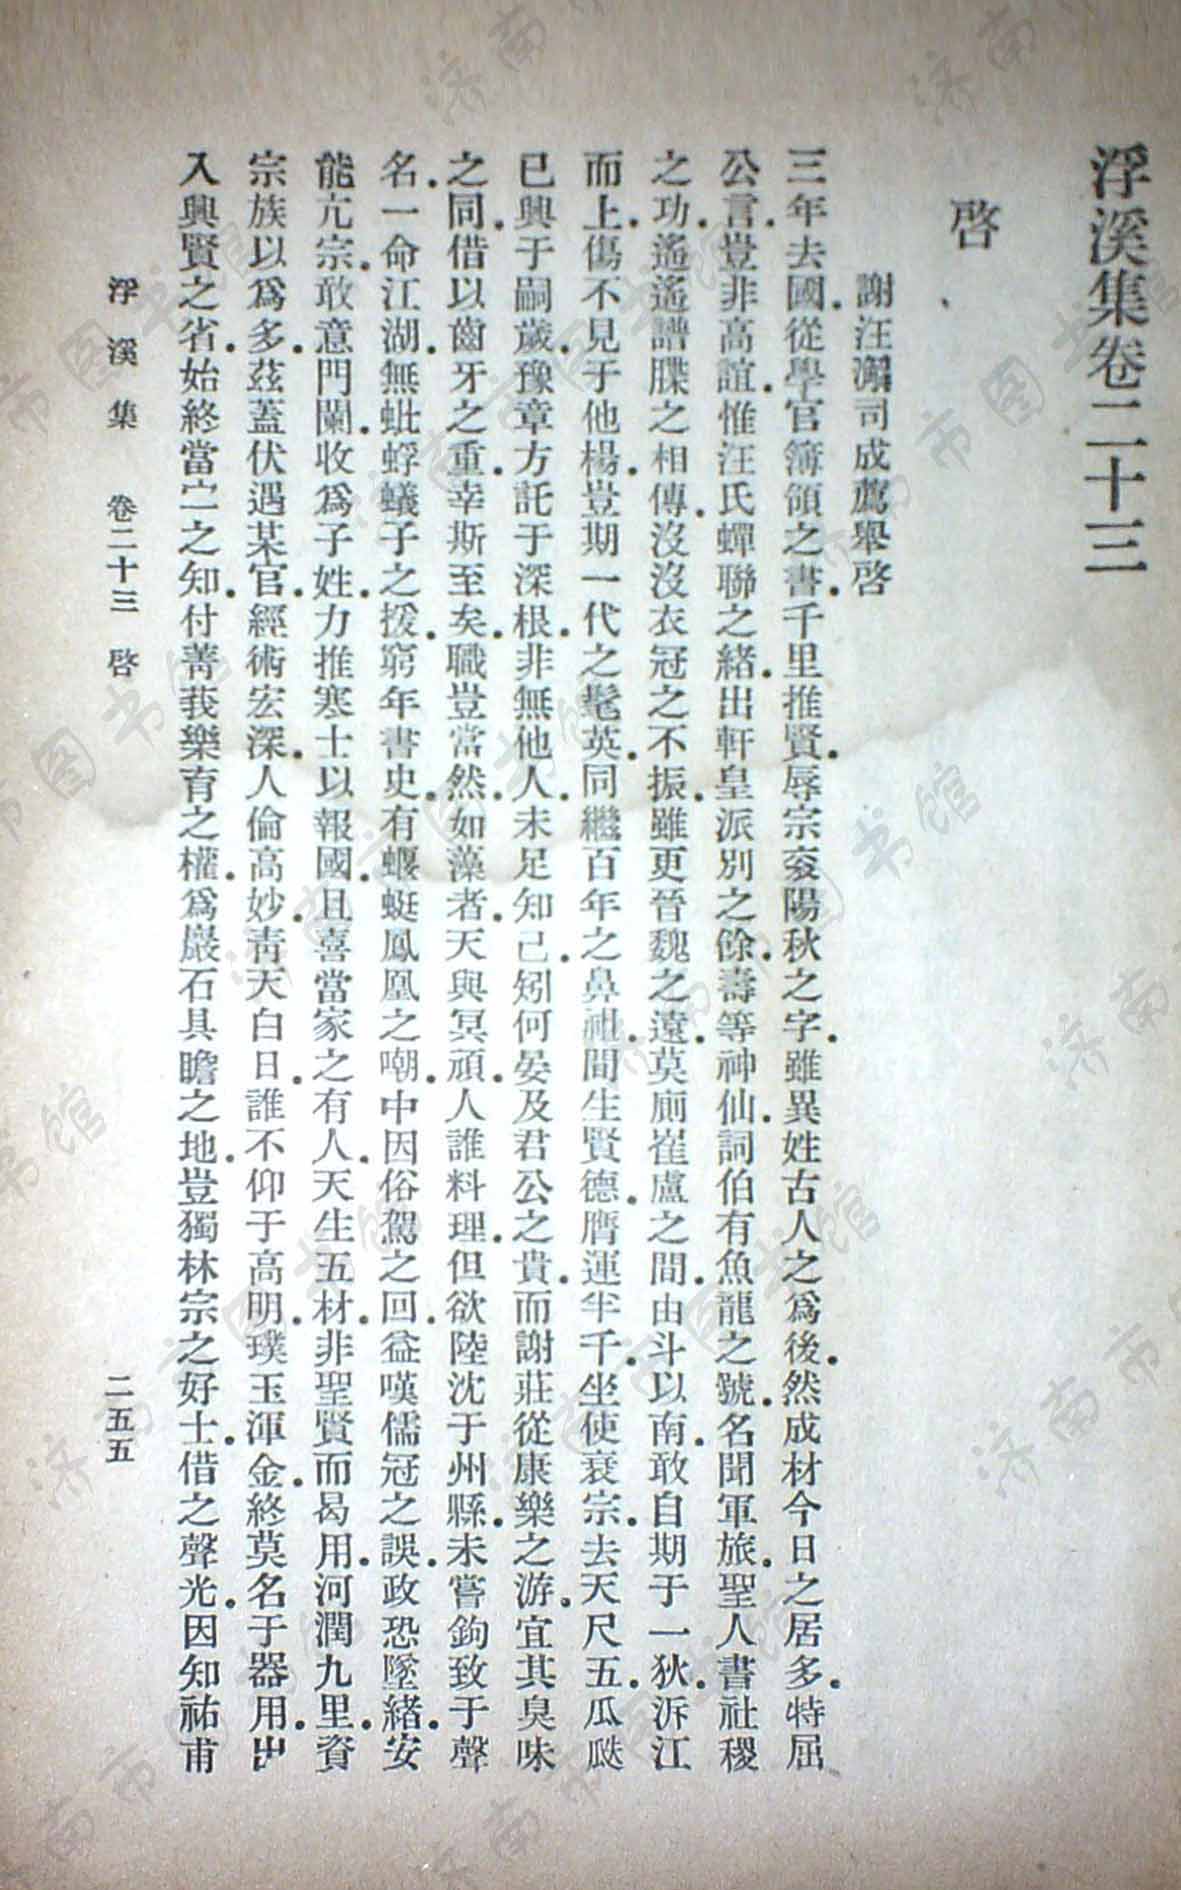 浮溪集卷二十三
啓
謝汪澥司成薦舉啓
三年去國從學官簿領之書千里推賢辱宗袞陽秋之字雖異姓古人之爲後然成材今日之居多特屈
公言豈非高誼惟汪氏蟬聯之緒出軒皇派別之餘壽等神仙詞伯有魚龍之號名聞軍旅聖人書社稷
之功遙遙譜牒之相傳沒沒衣冠之不振雖更晉魏之遠莫廁崔盧之間由斗以南敢自期于一狄泝江
而上傷不見于他楊豈期一代之髦英同繼百年之鼻祖間生賢德膺運半千坐使衰宗去天尺五瓜瓞
已興于嗣歲豫章方託于深根非無他人未足知己矧何晏及君公之貴而謝莊從康樂之游宜其臭味
之同借以齒牙之重幸斯至矣職豈當然如藻者天與冥頑人誰料理但欲陸沈于州縣未嘗鉤致于聲
名一命江湖無蚍蜉蟻子之援窮年書史有蝘蜓鳳凰之嘲中因俗駕之回益嘆儒冠之誤政恐墜緒安
能亢宗敢意門闌收爲子姓力推寒士以報國且喜當家之有人天生五材非聖賢而曷用河潤九里資
宗族以爲多茲蓋伏遇某官經術宏深人倫高妙青天白日誰不仰于高明璞玉渾金終莫名于器用出
入興賢之省始終當宁之知付菁莪樂育之權爲巖石具瞻之地豈獨林宗之好士借之聲光因知祐甫
浮溪集 卷二十三 啓 二五五
济南市图书馆